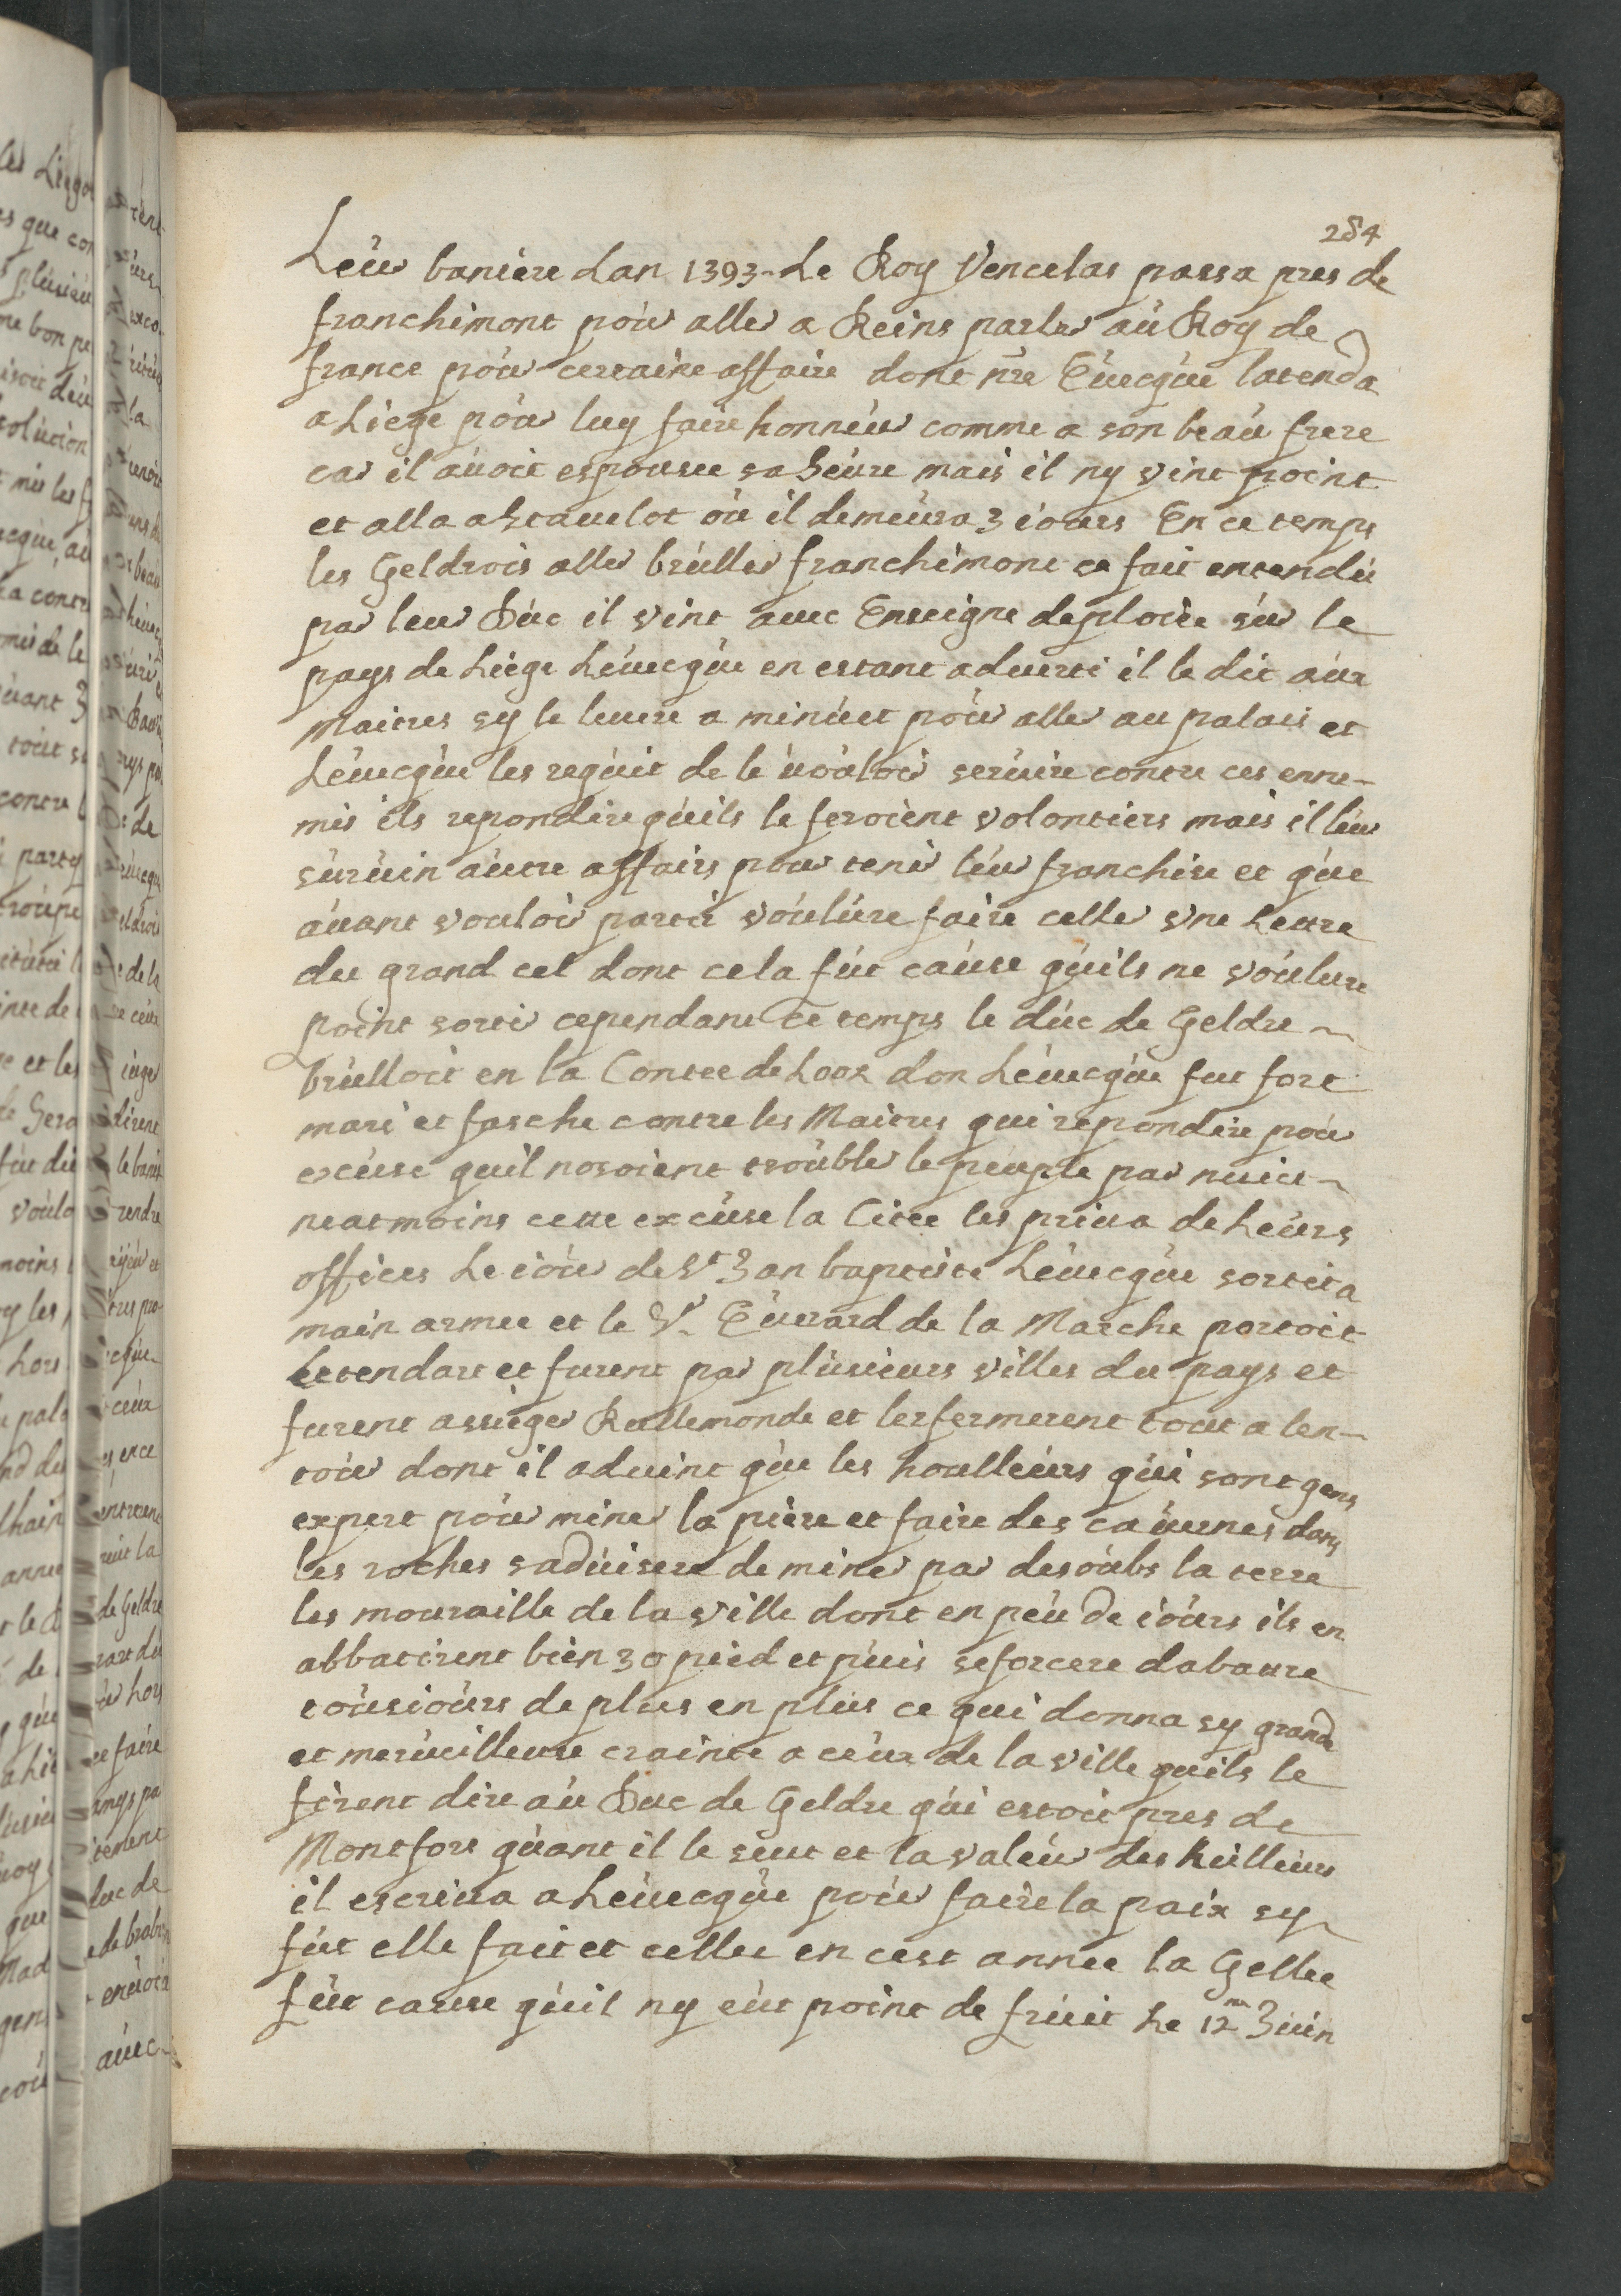 284
Leur baniere lan 1393 - Le Roy Vencelas passa pres de
franchimont pour aller a Reins parler au Roy de
france pour certaine affaire dont nre Euecque latenda
a Liege pour luy faire honneur comme a son beau frere
car il auoit espousee sa Seure mais il ny vint point
et alla a Stauelot ou il demeura 3 iours En ce temps
les Geldrois aller bruller franchimont ce fait entendu
par leur Duc il vint auec Enseigne deploiee sur le
pays de Liege Leuecque en estant aduerti il le dit aux
Maitres sy le leuere a minuet pour aller au palais et
Leuecque les requit de le uouloir seruire contre ces enne-
mis ils repondire quils le feroient volontiers mais il leur
suruin autre affairs pour tenir leur franchise et que
auant vouloir partir voulure faire celler vne Lettre
du grand cel dont cela fut cause quils ne voulure
point sortir cependant ce temps le duc de Geldre
brulloit en la Contee de Looz don Leuecque fut fort
mari et fasche contre les Maitres qui repondire pour
excuse quil nosoient troubler le peuple par nuict
neatmoins cette excuse la Citee les priua de Leurs
offices Le iour de St Jan baptiste Leuecque sortit a
main armee et le Sr Euerard de la Marche portoit
Letendart et furent par plusieurs villes du pays et
furent assieger Rullemonde et lenfermerent tout a len-
tour dont il aduint que les houlleurs qui sont gens
expert pour miner la piere et faire des cauernes dans
les roches saduisere de miner par desoubs la terre
les mouraille de la ville dont en peu de iours ils en
abbatirent bien 30 pied et puis seforcere dabattre
tousiours de plus en plus ce qui donna sy grande
et merueilleuse crainte a ceux de la ville quils le
firent dire au Duc de Geldre qui estoit pres de
Montfort quant il le seut et la valeur des hulleurs
il escriua a Leuecque pour faire la paix sy
fut elle fait et cellee en cest annee la Gellee
fut cause quil ny eut point de fruit Le 12me Juin